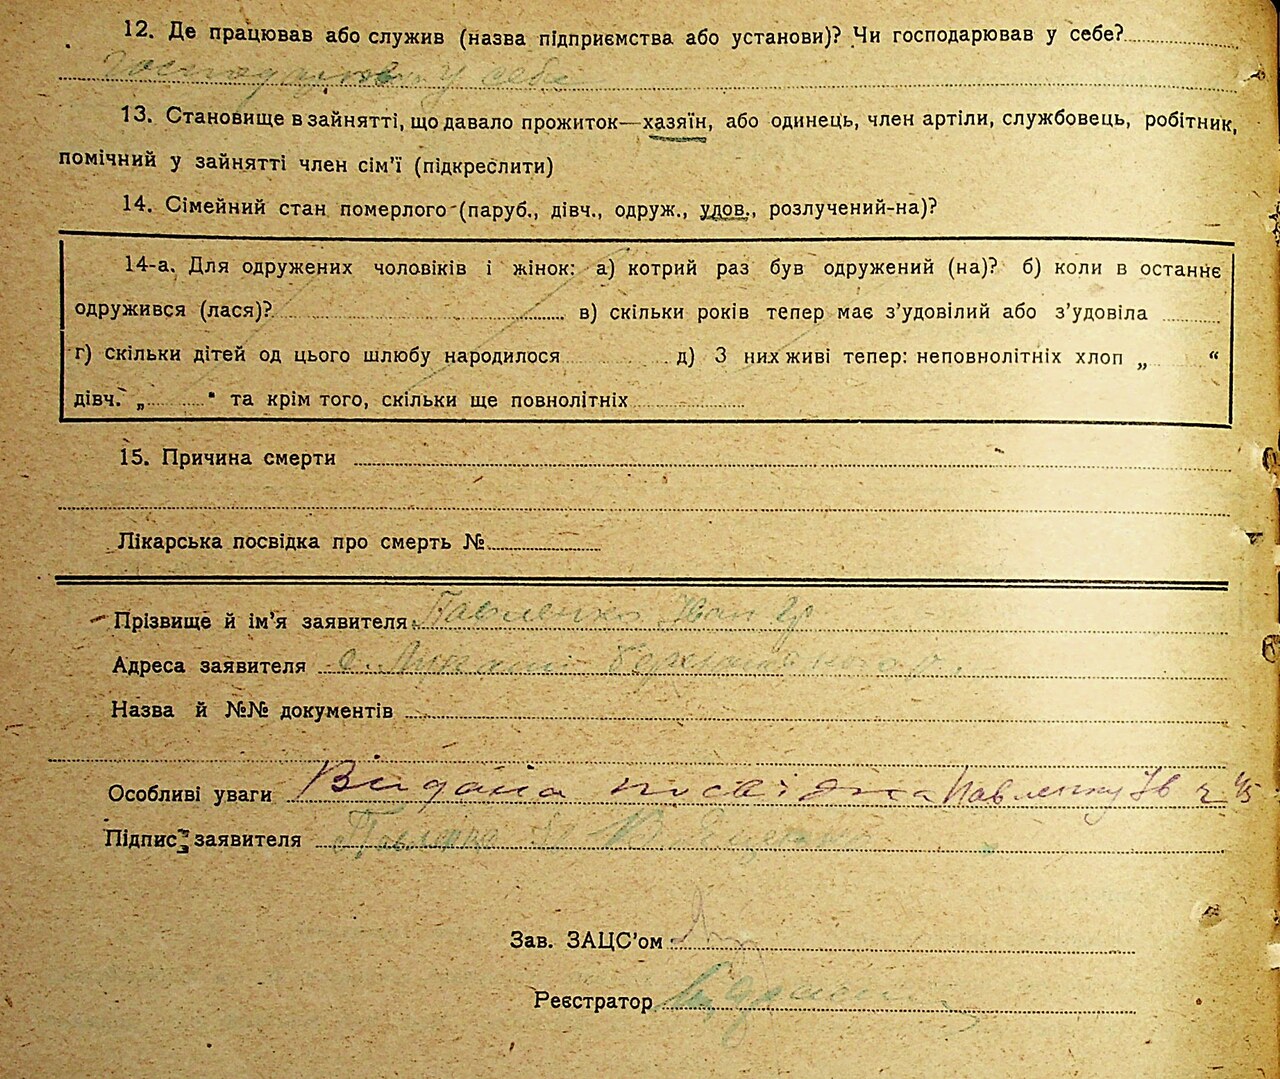 12. Де працював або служив (назва підприємства або установи)? Чи господарював у себе?
господарював у себе
13. Становище в зайнятті, що давало прожиток—хазяїн, або одинець, член артіли, службовець, робітник,
помічний у зайнятті член сім'ї (підкреслити)
14. Сімейний стан померлого (паруб., дівч., одруж., удов., розлучений-на)?
14-а. Для одружених чоловіків і жінок: а) котрий раз був одружений (на)? б) коли в останнє
одружився (лася)? в) скільки років тепер має з'удовілий або з'удовіла
г) скільки дітей од цього шлюбу народилося д) З них живі тепер: неповнолітніх хлоп „ “
дівч. „ " та крім того, скільки ще повнолітніх
15. Причина смерти
Лікарська посвідка про смерть №
Прізвище й ім'я заявителя Павленко Іван Гр
Адреса заявителя с.
Назва й №№ документів
Особливі уваги Видана посвідка Павленку Ів
Підпис заявителя Павленко
Зав. ЗАЦС'ом
Реєстратор